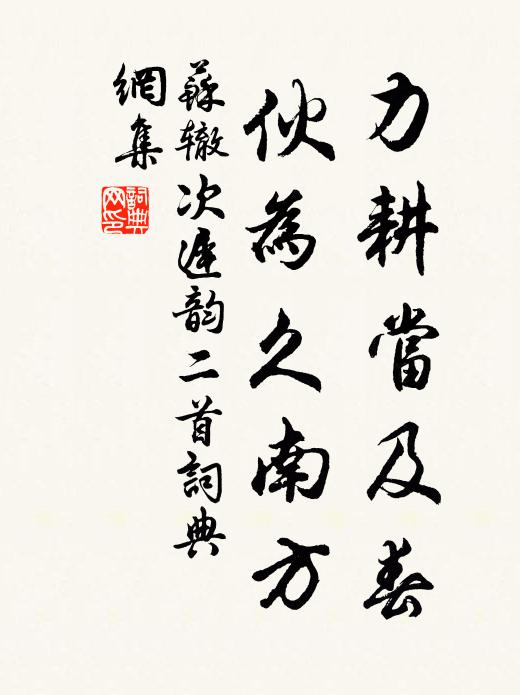 力耕當及春
伙為久南方
蘇辙次遲韵二首詞典
網集
詞典
网印